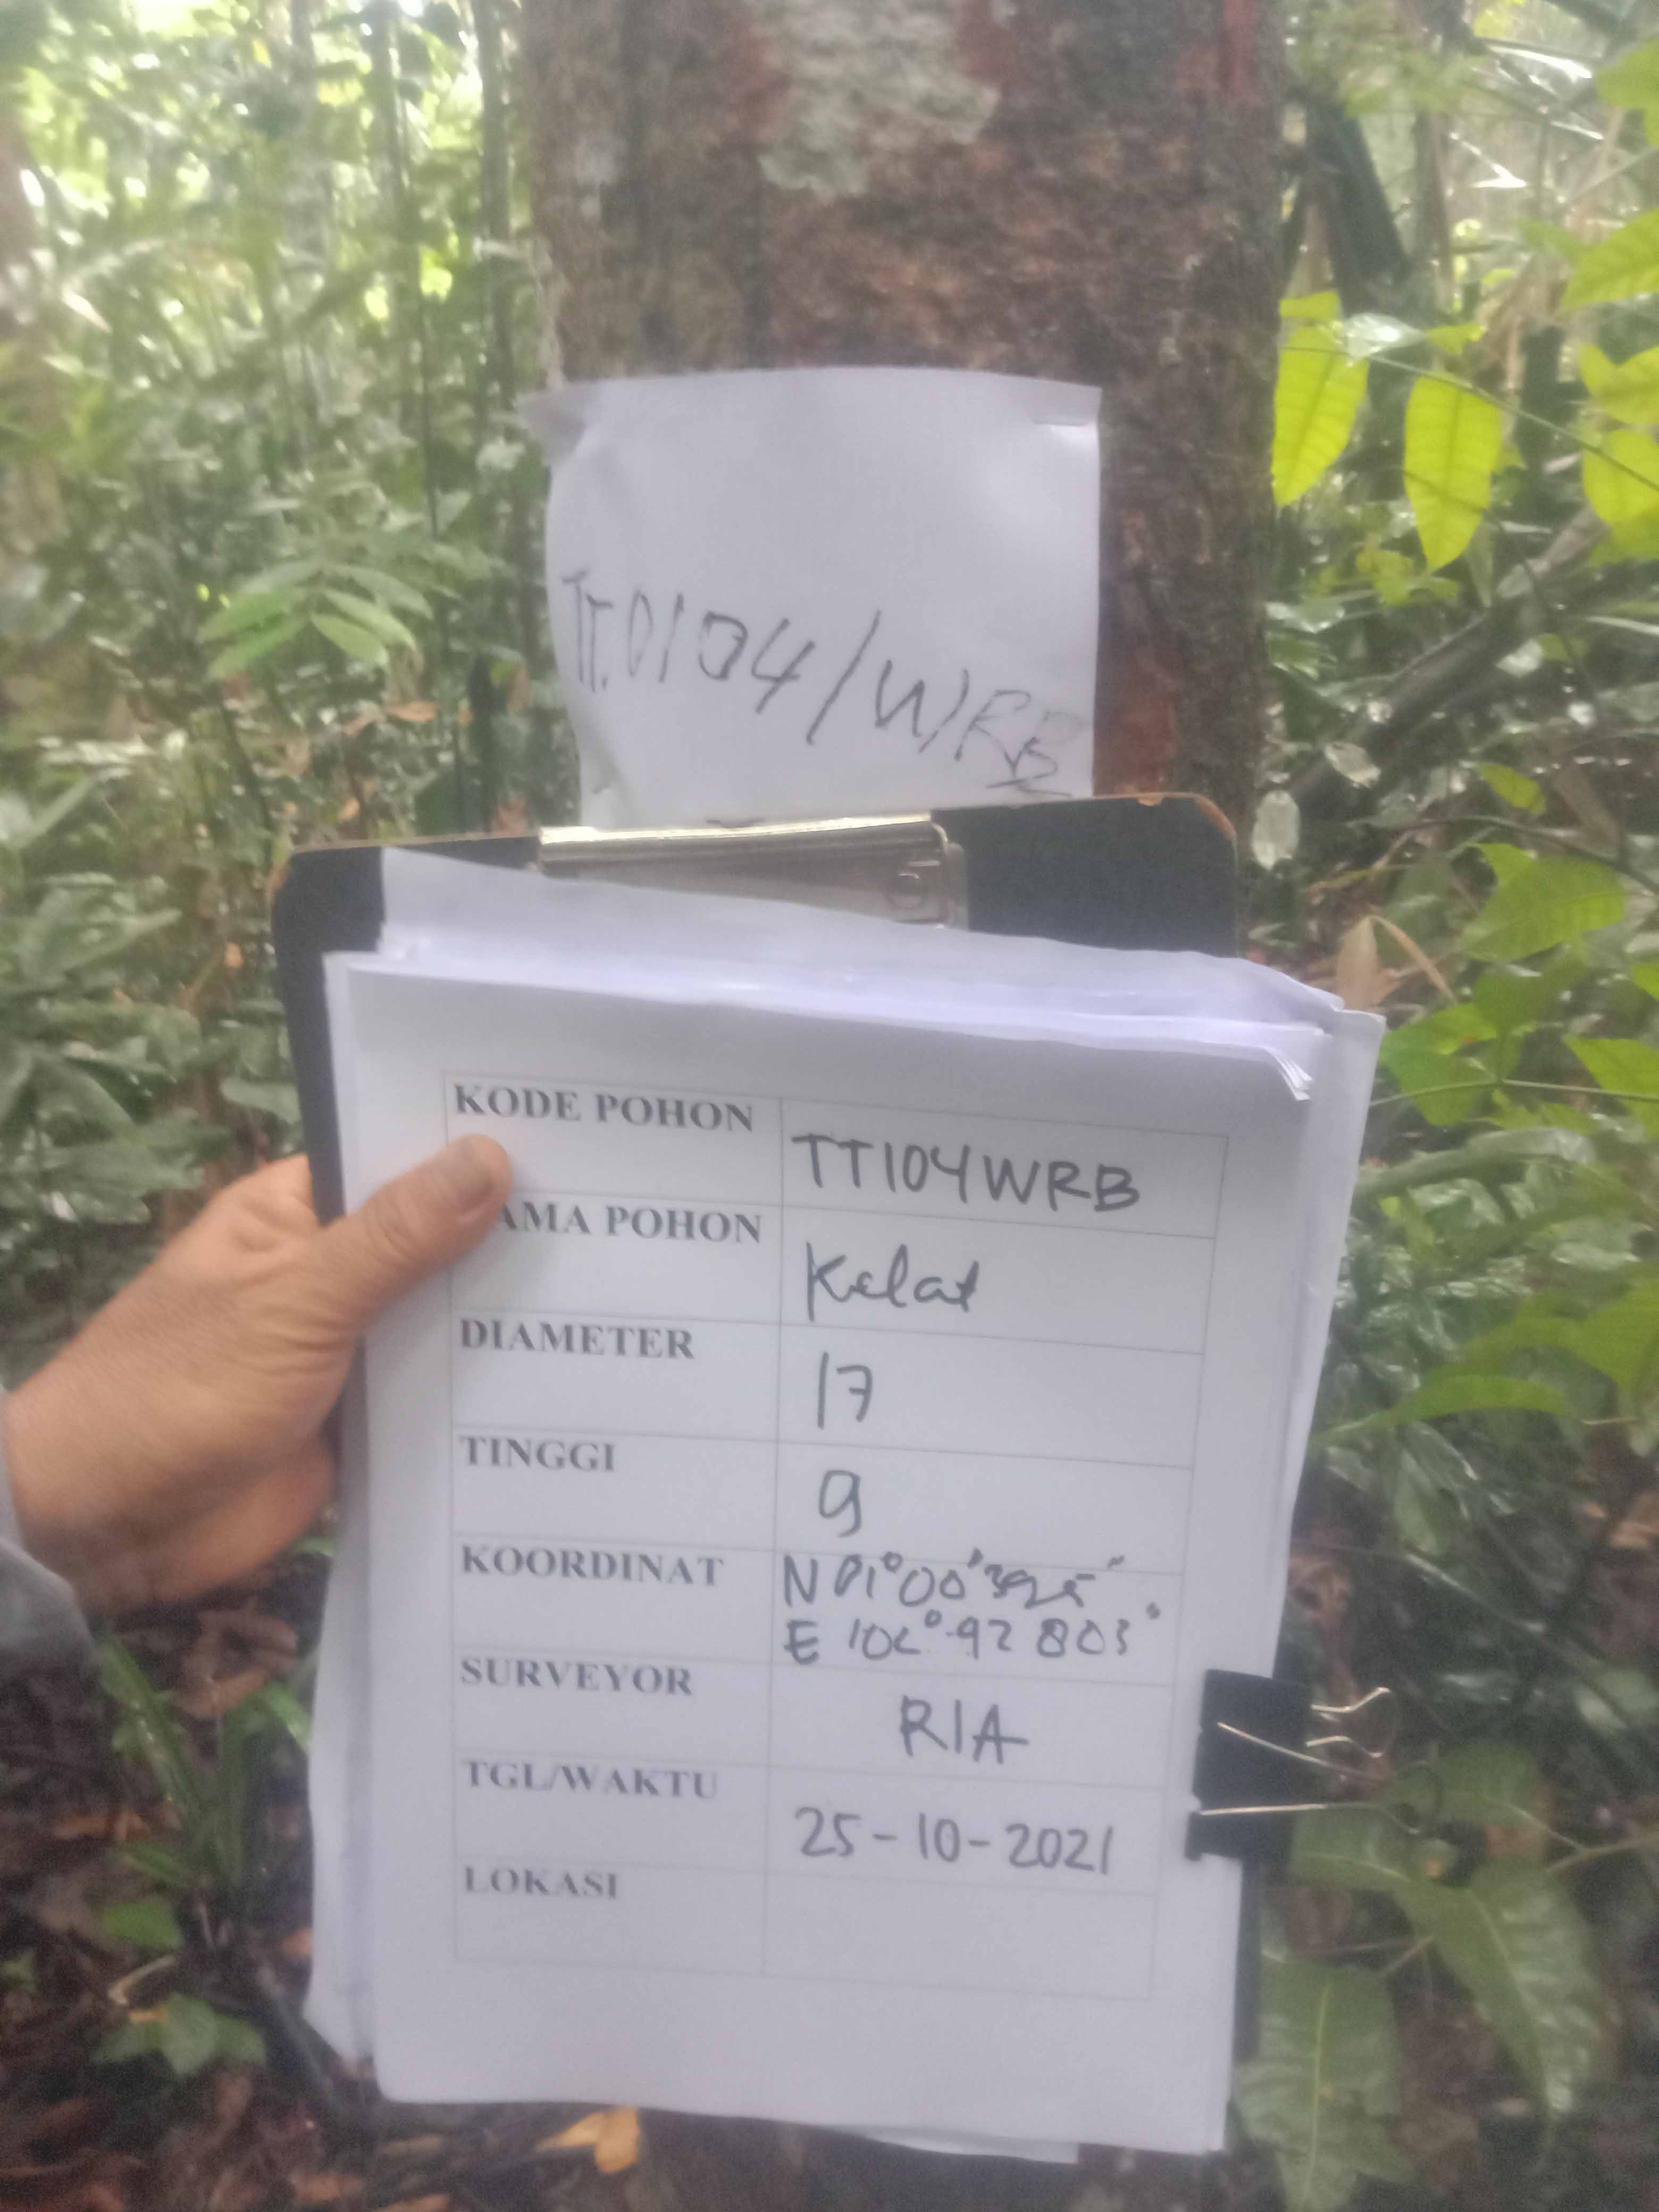 TT.0104/WRB
KODE POHON
TT104WRB
AMA POHON
Kelat
DIAMETER
17
TINGGI
9
KOORDINAT
N 01°00'395"
E 102°92 803"
SURVEYOR
RIA
TGL/WAKTU
25-10-2021
LOKASI